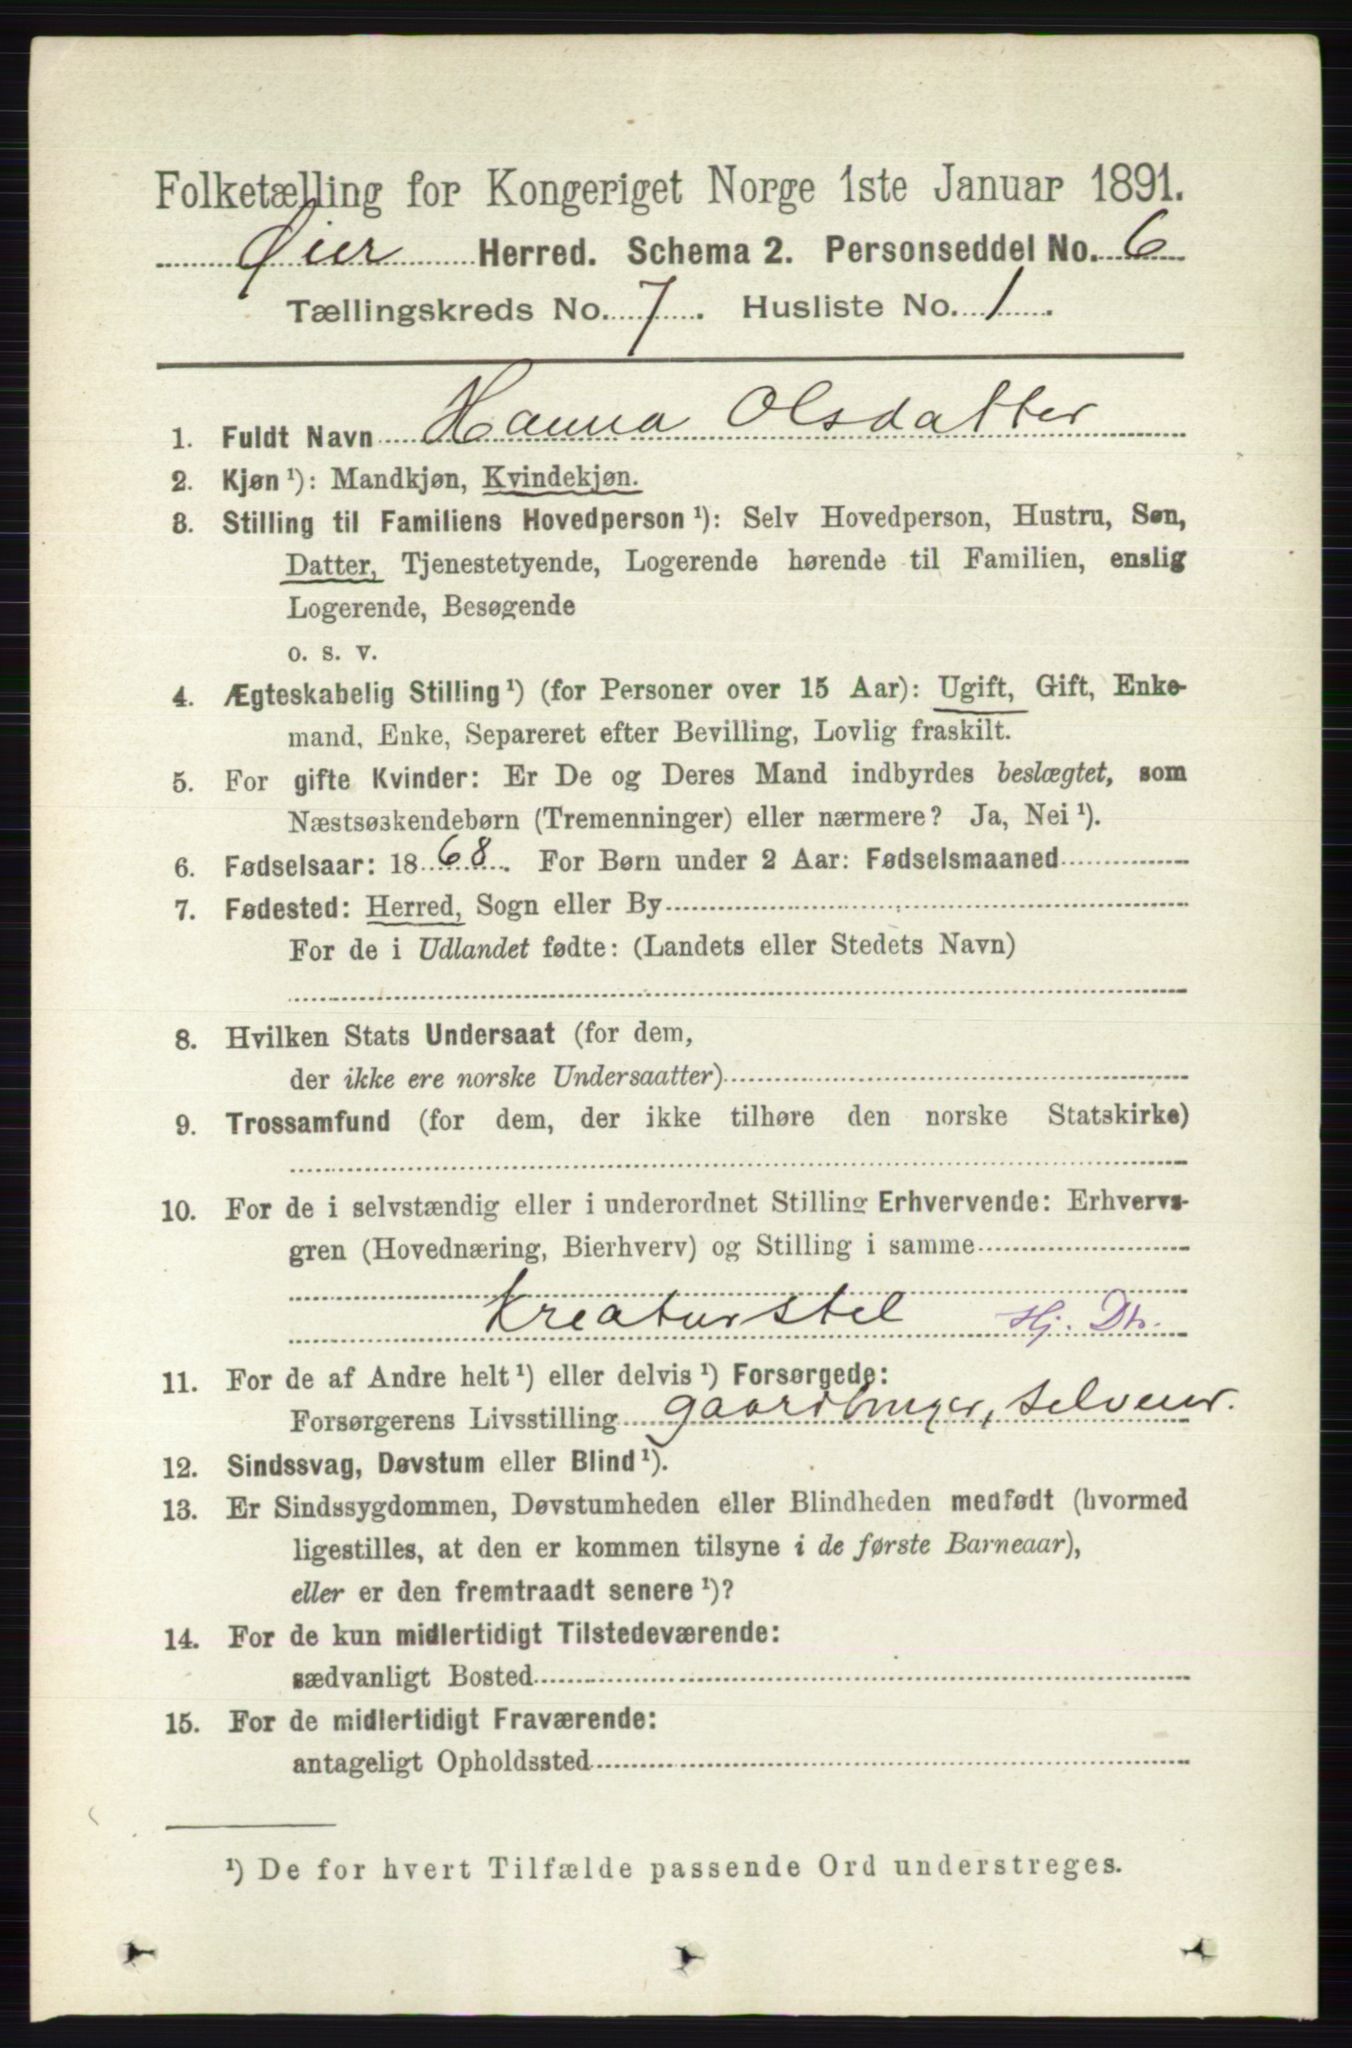 Folketælling for Kongeriget Norge 1ste Januar 1891.
Øier Herred. Schema 2. Personseddel No. 6
Tællingskreds No. 7. Husliste No. 1.
1. Fuldt Navn Hanna Olsdatter
2. Kjøn ¹): Mandkjøn, Kvindekjøn.
3. Stilling til Familiens Hovedperson ¹): Selv Hovedperson, Hustru, Søn,
Datter, Tjenestetyende, Logerende hørende til Familien, enslig
Logerende, Besøgende
o. s. v.
4. Ægteskabelig Stilling ¹) (for Personer over 15 Aar): Ugift, Gift, Enke-
mand, Enke, Separeret efter Bevilling, Lovlig fraskilt.
5. For gifte Kvinder: Er De og Deres Mand indbyrdes beslægtet, som
Næstsøskendebørn (Tremenninger) eller nærmere? Ja, Nei ¹).
6. Fødselsaar: 1868. For Børn under 2 Aar: Fødselsmaaned
7. Fødested: Herred, Sogn eller By
For de i Udlandet fødte: (Landets eller Stedets Navn)
8. Hvilken Stats Undersaat (for dem,
der ikke ere norske Undersaatter)
9. Trossamfund (for dem, der ikke tilhøre den norske Statskirke)
10. For de i selvstændig eller i underordnet Stilling Erhvervende: Erhvervs-
gren (Hovednæring, Bierhverv) og Stilling i samme
Kreaturstel Hj. Dtr.
11. For de af Andre helt ¹) eller delvis ¹) Forsørgede:
Forsørgerens Livsstilling gaardbruger, selveier.
12. Sindssvag, Døvstum eller Blind ¹).
13. Er Sindssygdommen, Døvstumheden eller Blindheden medfødt (hvormed
ligestilles, at den er kommen tilsyne i de første Barneaar),
eller er den fremtraadt senere ¹)?
14. For de kun midlertidigt Tilstedeværende:
sædvanligt Bosted
15. For de midlertidigt Fraværende:
antageligt Opholdssted
¹) De for hvert Tilfælde passende Ord understreges.